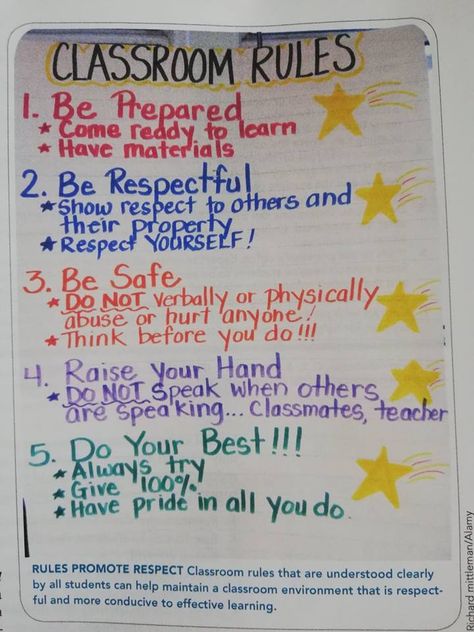 CLASSROOM RULES
1. Be Prepared
★ Come ready to learn
★ Have materials
2. Be Respectful
★ Show respect to others and
their property
★ Respect YOURSELF!
3. Be Safe
★ DO NOT verbally or physically
abuse or hurt anyone!
★ Think before you do!!!
4. Raise Your Hand
★ DO NOT Speak when others
are speaking... Classmates, teacher
5. Do Your Best!!!
★ Always try
★ Give 100%
★ Have pride in all you do.
RULES PROMOTE RESPECT Classroom rules that are understood clearly
by all students can help maintain a classroom environment that is respect-
ful and more conducive to effective learning.
Richard mittleman/Alamy